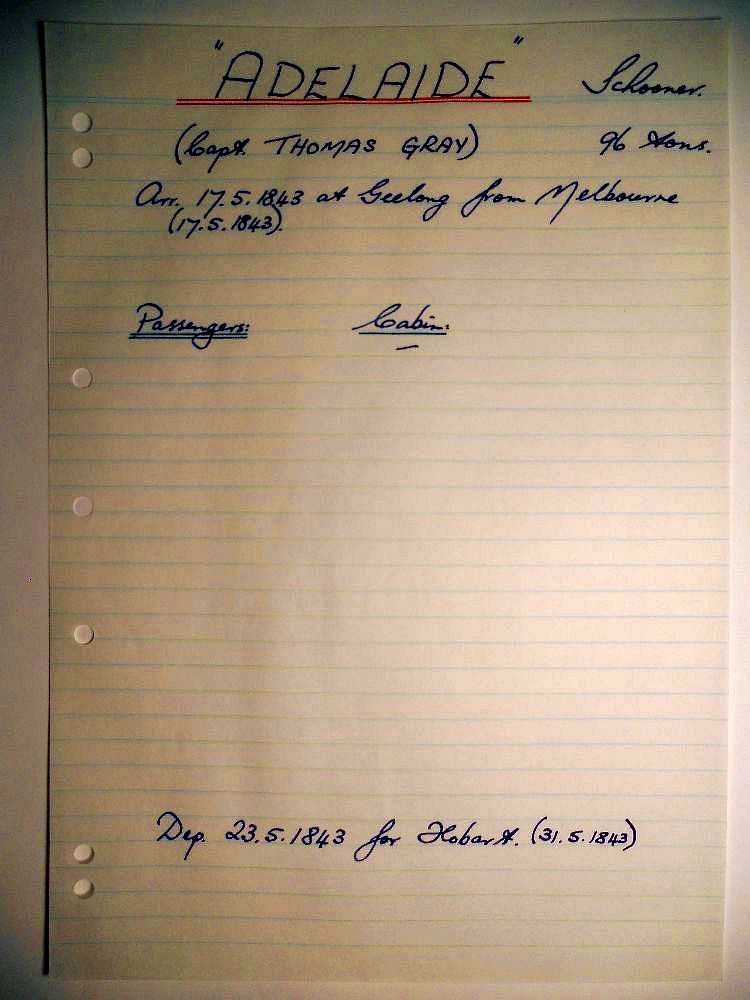 "ADELAIDE" Schooner.
(Capt. THOMAS GRAY) 96 tons.
Arr. 17.5.1843 at Geelong from Melbourne
(17.5.1843).
Passengers: Cabin:
—
Dep. 23.5.1843 for Hobart. (31.5.1843)